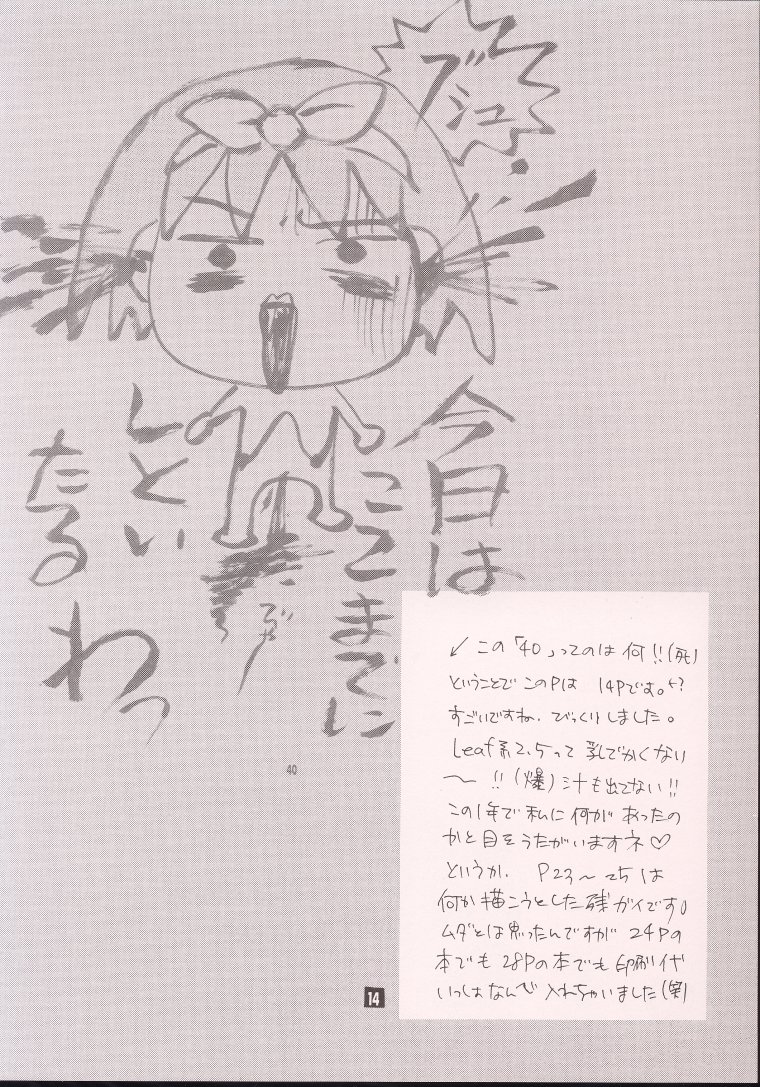 ブシュ
今日は
ここまでに
しとい
たるわっ
でゃ
40
↙この「40」ってのは何!!(死)
ということでこのPは 14Pです。
すごいですね、びっくりしました。
Leaf系2.5って 乳でかくない
〜!!(爆)汁も出てない!!
この1年で私に何があったの
かと目をうたがいますネ♡
というか、P23〜25は
何か描こうとした残ガイです。
ムダとは思ったんですが 24Pの
本でも28Pの本でも印刷代
いっしょなんで入れちゃいました(笑)
14